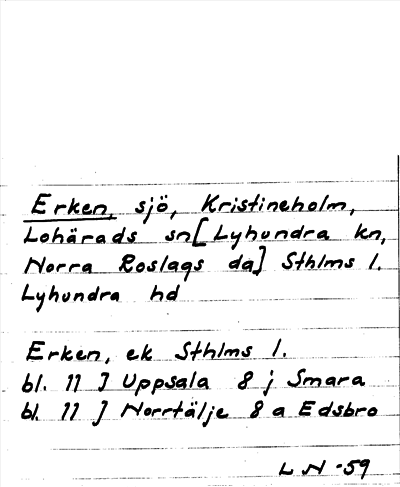 Erken, sjö, Kristineholm,
Lohärads sn[Lyhundra kn,
Norra Roslags da] Sthlms l.
Lyhundra hd
Erken, ek Sthlms l.
bl. 11 J Uppsala 8 j Smara
bl. 11 J Norrtälje 8 a Edsbro
L N -59